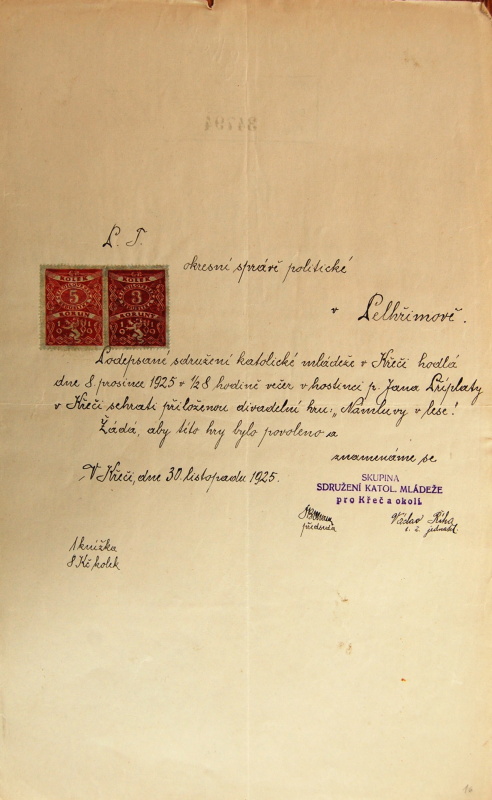 34794
L. T.
okresní správě politické
v Pelhřimově.
KOLEK
5
KORUN
KOLEK
3
KORUNY
Podepsané sdružení katolické mládeže v Křeči hodlá
dne 8. prosince 1925 v ½8 hodině večer v hostinci p. Jana Příplaty
v Křeči sehrati přiloženou divadelní hru: „Námluvy v lese!
Žádá, aby této hry bylo povoleno a
znamenáme se
V Křeči, dne 30. listopadu 1925.
SKUPINA
SDRUŽENÍ KATOL. MLÁDEŽE
pro Křeč a okolí.
předseda
Václav Říha
t. č. jednatel.
1 knížka
8 Kč kolek